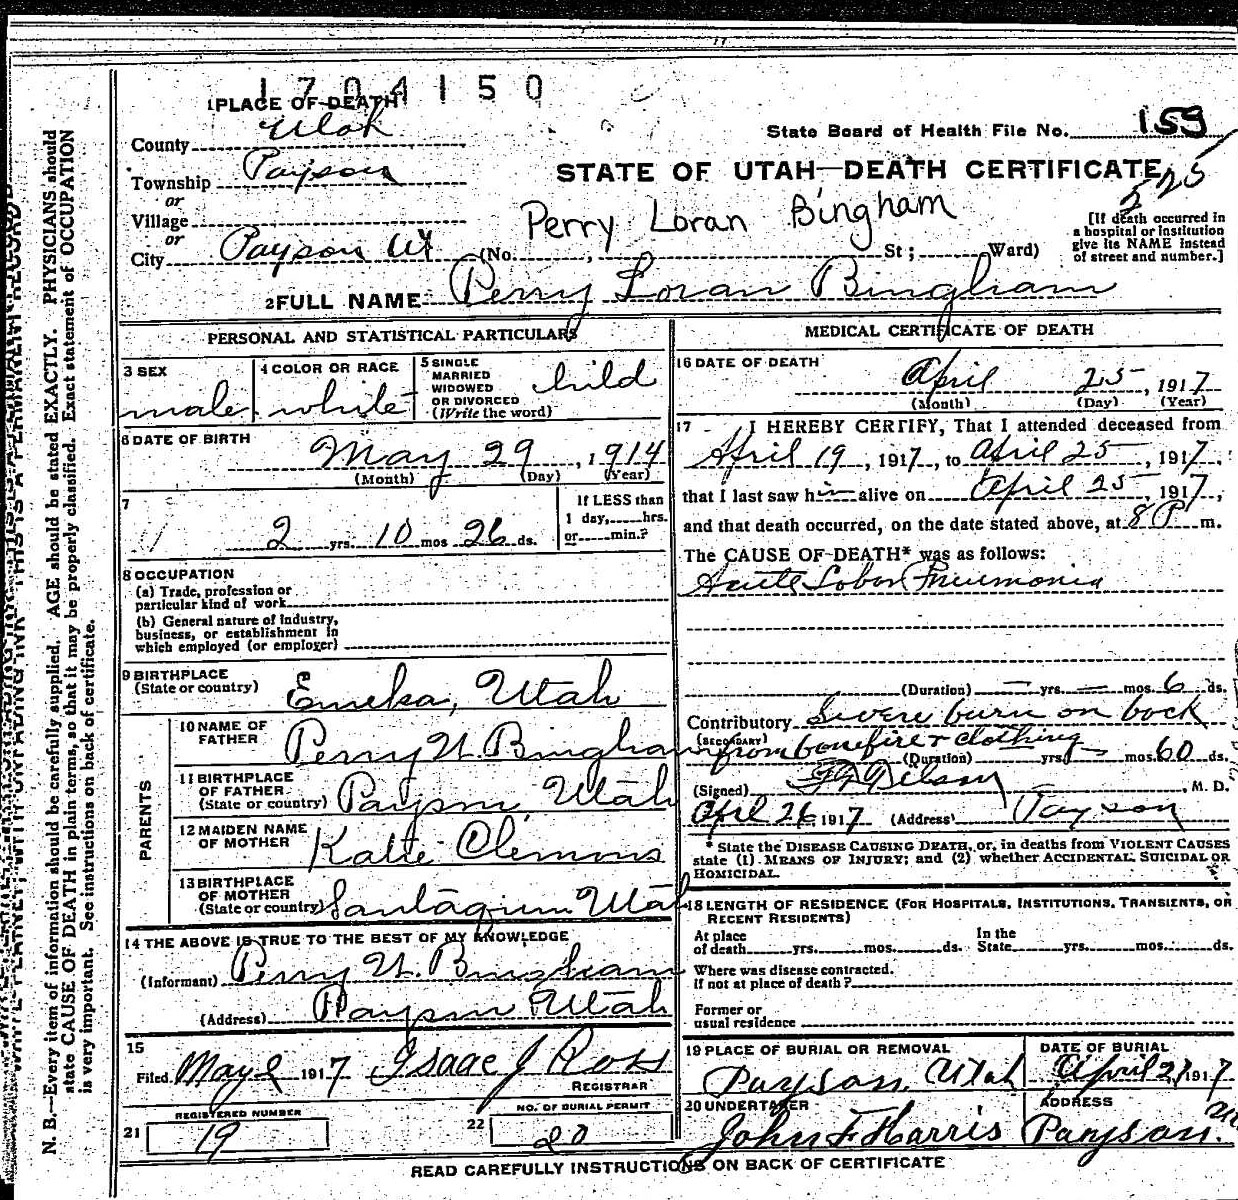 1704150
1 PLACE OF DEATH
County Utah
State Board of Health File No. 159
Township Payson
STATE OF UTAH—DEATH CERTIFICATE
525
or
Village
Perry Loran Bingham
or
City Payson Ut (No. , St; Ward)
[If death occurred in
a hospital or institution
give its NAME instead
of street and number.]
2 FULL NAME Perry Loran Bingham
PERSONAL AND STATISTICAL PARTICULARS
3 SEX male
4 COLOR OR RACE white
5 SINGLE
MARRIED
WIDOWED
OR DIVORCED
(Write the word) child
6 DATE OF BIRTH
May 29, 1914
(Month) (Day) (Year)
7
2 yrs. 10 mos. 26 ds.
If LESS than
1 day, hrs.
or min.?
8 OCCUPATION
(a) Trade, profession or
particular kind of work
(b) General nature of industry,
business, or establishment in
which employed (or employer)
9 BIRTHPLACE
(State or country) Eureka, Utah
PARENTS
10 NAME OF
FATHER Perry W. Bingham
11 BIRTHPLACE
OF FATHER
(State or country) Payson, Utah
12 MAIDEN NAME
OF MOTHER Katie Clemons
13 BIRTHPLACE
OF MOTHER
(State or country) Santaquin Utah
14 THE ABOVE IS TRUE TO THE BEST OF MY KNOWLEDGE
(Informant) Perry W. Bingham
(Address) Payson Utah
15
Filed May 2 1917 Isaac J Ross
REGISTRAR
REGISTERED NUMBER
21 19
NO. OF BURIAL PERMIT
22 20
MEDICAL CERTIFICATE OF DEATH
16 DATE OF DEATH
April 25, 1917
(Month) (Day) (Year)
17 I HEREBY CERTIFY, That I attended deceased from
April 19, 1917, to April 25, 1917,
that I last saw him alive on April 25, 1917,
and that death occurred, on the date stated above, at 8 P m.
The CAUSE OF DEATH* was as follows:
Acute Lobar Pneumonia
(Duration) — yrs. — mos. 6 ds.
Contributory Severe burn on back
(SECONDARY) from bonefire + clothing
(Duration) yrs. — mos. 60 ds.
(Signed) , M. D.
April 26, 1917 (Address) Payson
* State the DISEASE CAUSING DEATH, or, in deaths from VIOLENT CAUSES
state (1) MEANS OF INJURY; and (2) whether ACCIDENTAL, SUICIDAL OR
HOMICIDAL.
18 LENGTH OF RESIDENCE (FOR HOSPITALS, INSTITUTIONS, TRANSIENTS, OR
RECENT RESIDENTS)
At place
of death yrs. mos. ds.
In the
State yrs. mos. ds.
Where was disease contracted,
if not at place of death?
Former or
usual residence
19 PLACE OF BURIAL OR REMOVAL
Payson Utah
DATE OF BURIAL
April 27, 1917
20 UNDERTAKER
John F Harris
ADDRESS
Payson.
READ CAREFULLY INSTRUCTIONS ON BACK OF CERTIFICATE
N. B.—Every item of information should be carefully supplied. AGE should be stated EXACTLY. PHYSICIANS should
state CAUSE OF DEATH in plain terms, so that it may be properly classified. Exact statement of OCCUPATION
is very important. See instructions on back of certificate.